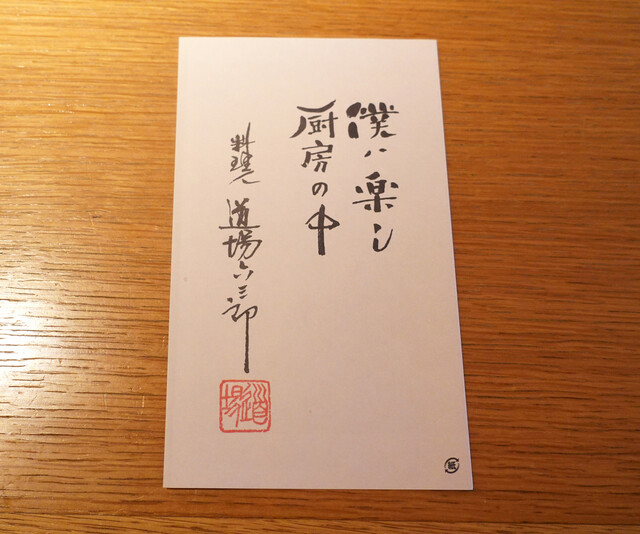 僕ハ楽し
厨房の中
料理人
道場六三郎
道場
紙